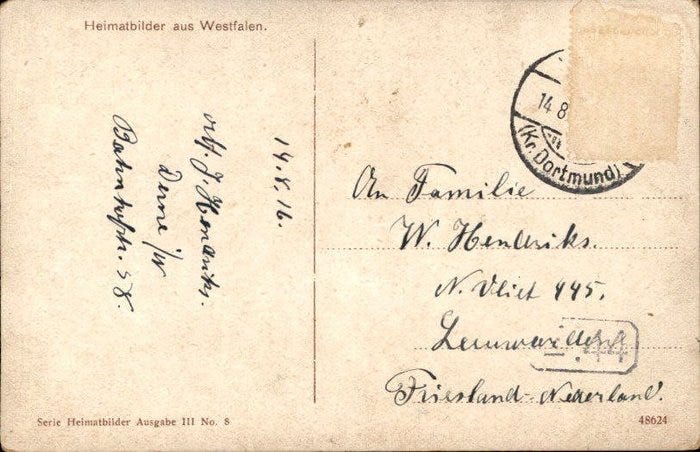 Heimatbilder aus Westfalen.
14.8.16.
J Hendriks.
Derne i/W
Bahnhofstr. 58.
14.8
(Kr. Dortmund)
An Familie
W. Hendriks.
N. Vliet 445.
Friesland-Nederland.
Serie Heimatbilder Ausgabe III No. 8
48624